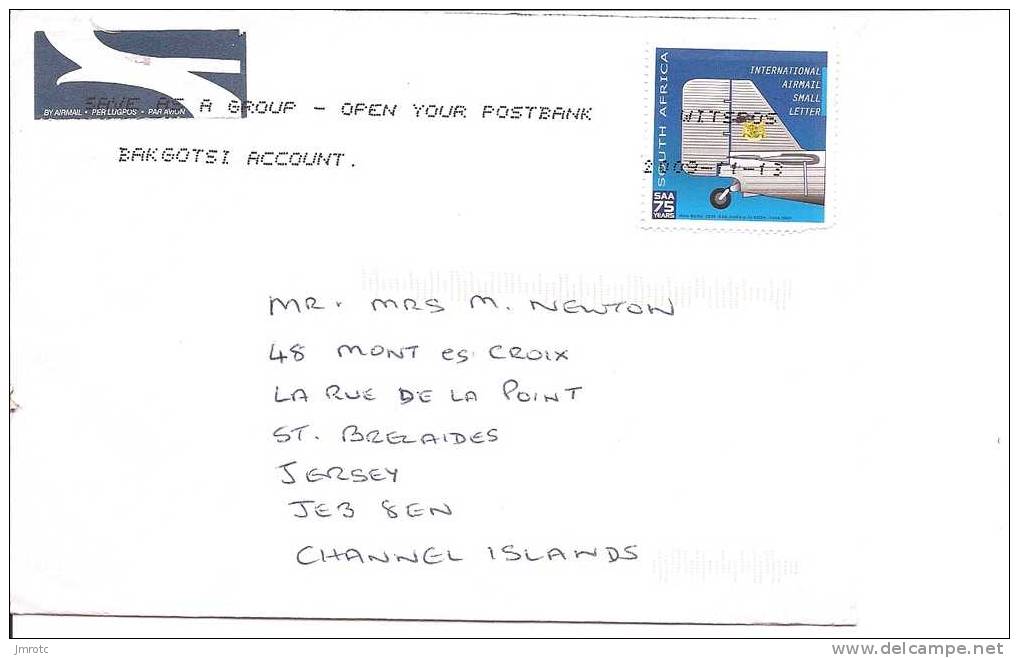 BY AIRMAIL • PER LUGPOS • PAR AVION
SAVE AS A GROUP - OPEN YOUR POSTBANK
BAKGOTSI ACCOUNT.
SOUTH AFRICA
INTERNATIONAL
AIRMAIL
SMALL
LETTER
WITSPOS
2009-11-13
SAA
75
YEARS
MR. MRS M. NEWTON
48 MONT es CROIX
LA RUE DE LA POINT
ST. BRELAIDES
JERSEY
JE3 8EN
CHANNEL ISLANDS
jmrotc
delcampe.net